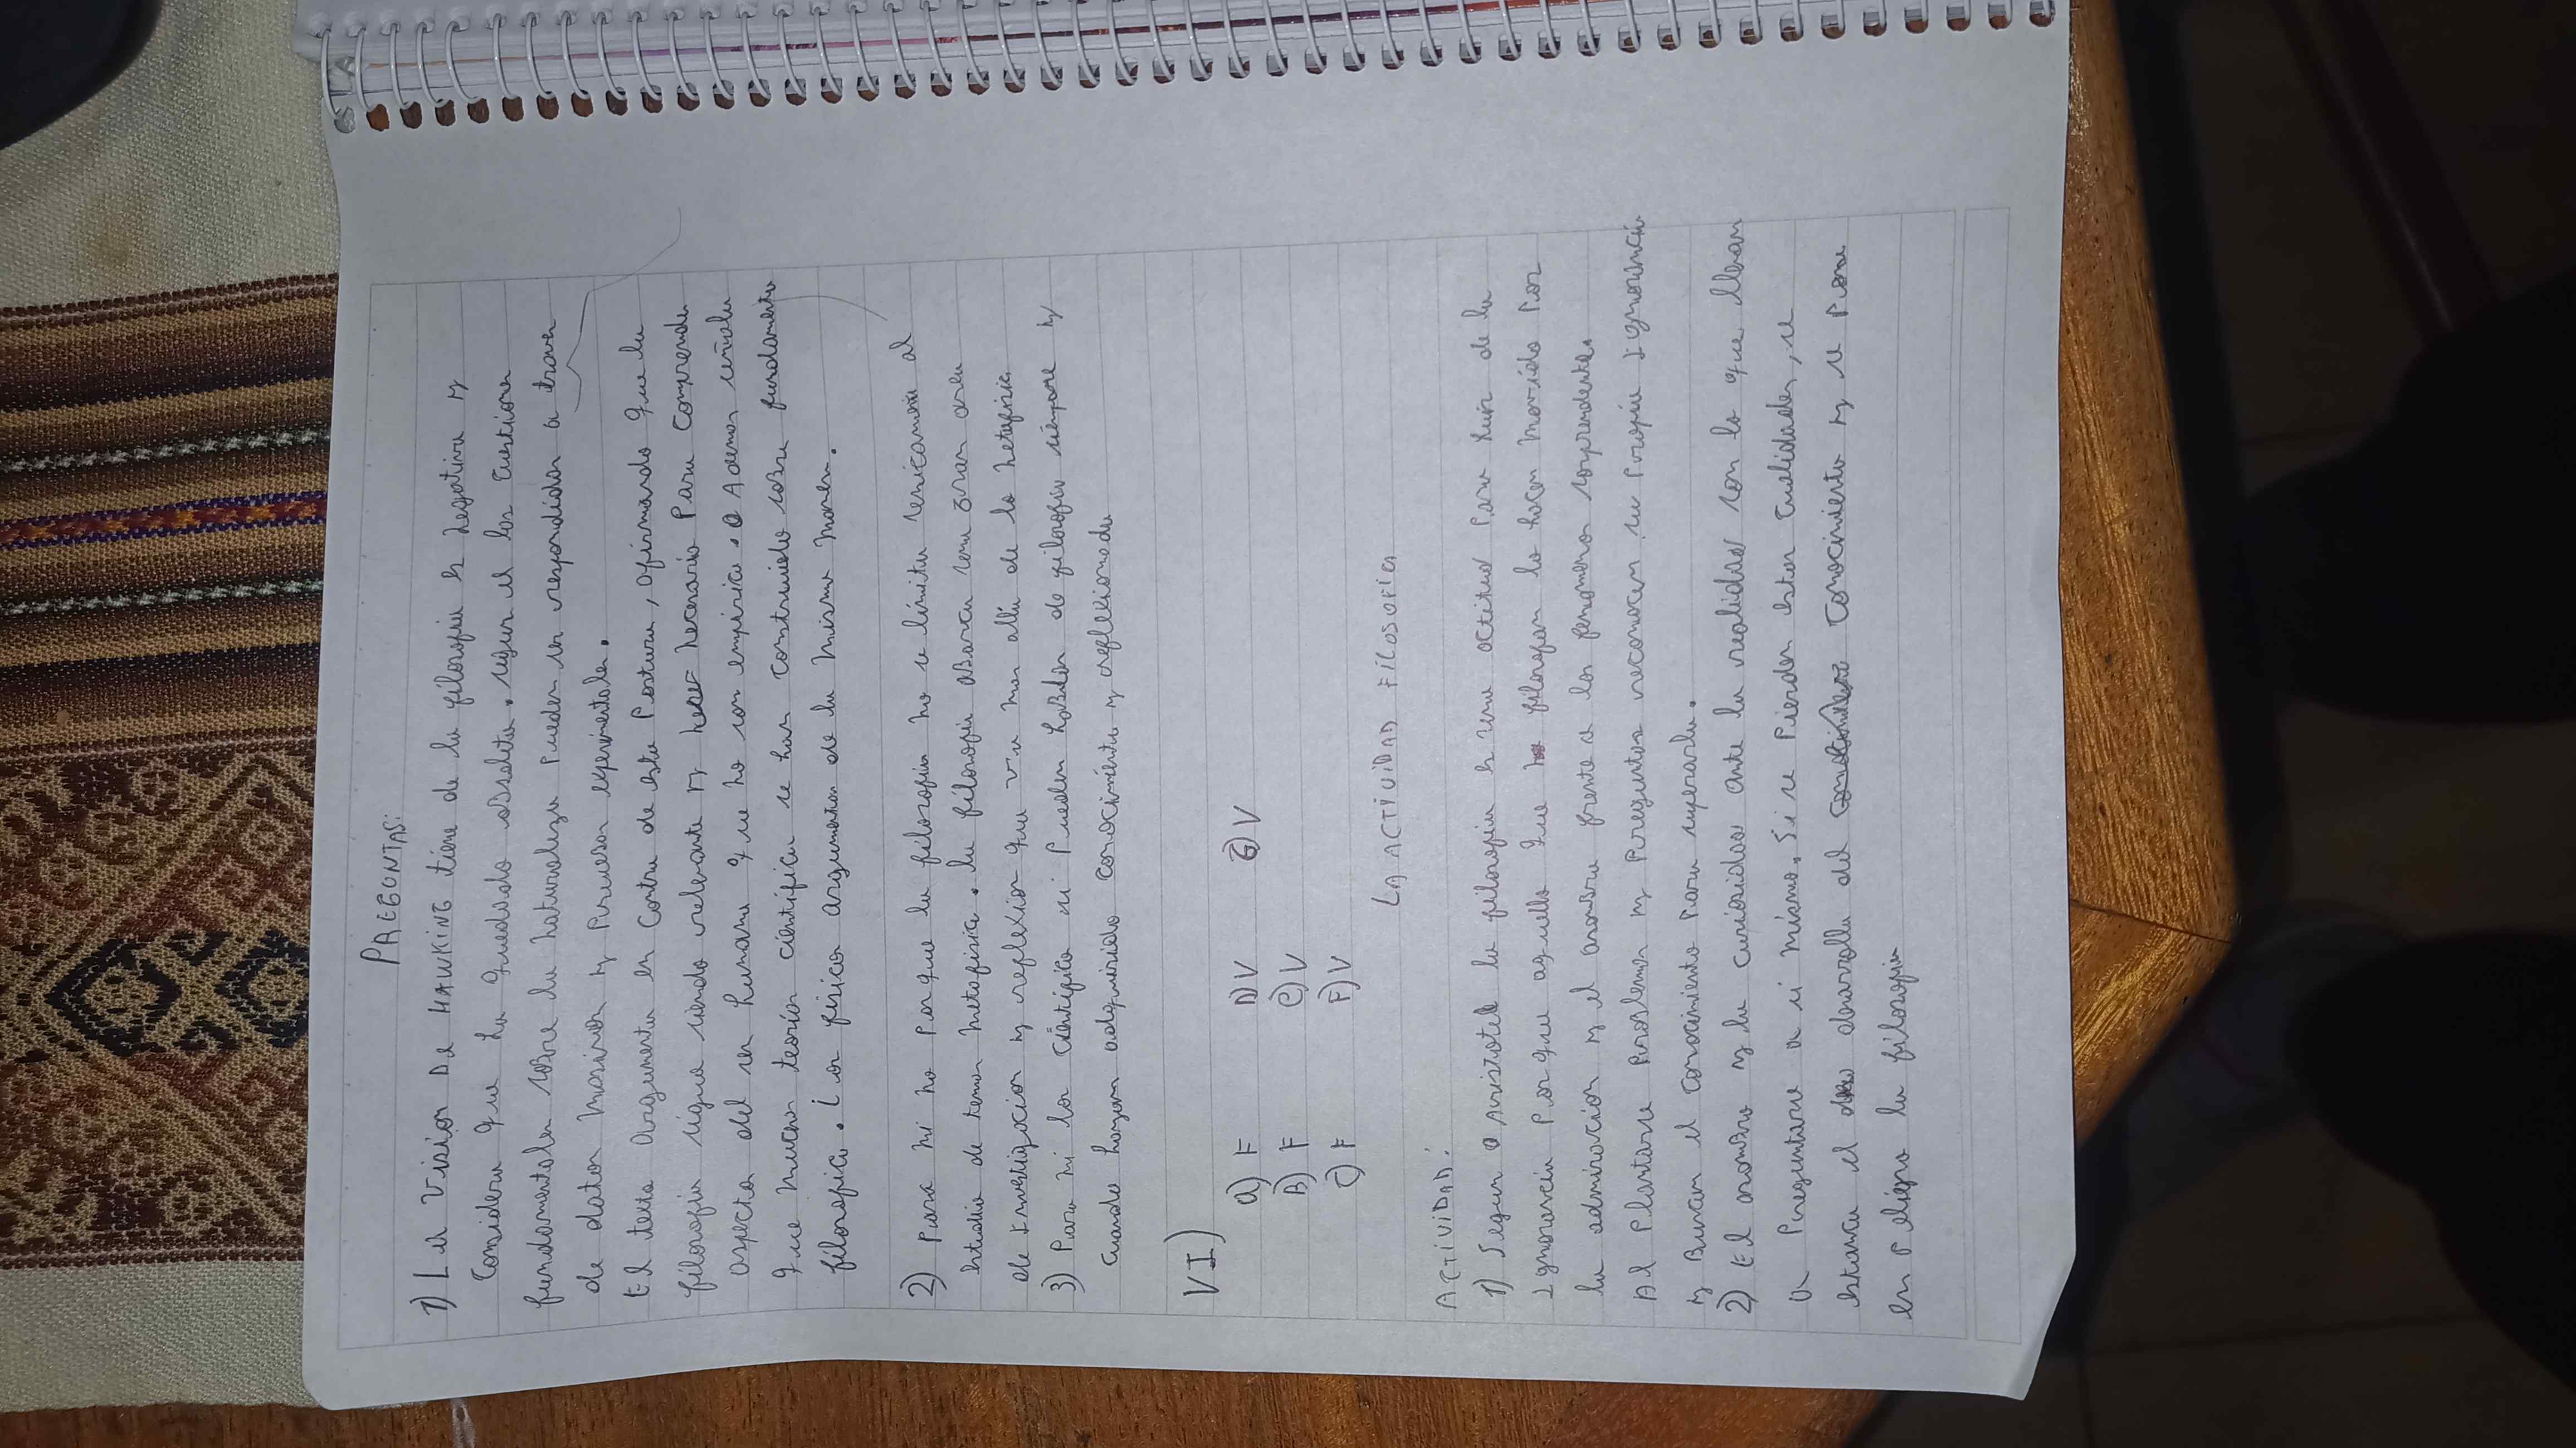 PREGUNTAS:
1) La Vision De HAWKING tiene de la filosofia es Negativa y
Considera que ha quedado obsoleta. segun el las Cuestiones
fundamentales sobre la naturaleza pueden ser respondidas a traves
de datos masivos y Procesos experimentales.
El texto argumenta en Contra de esta Postura, afirmando que la
filosofia sigue siendo relevante y necesario Para Comprender
aspectos del ser humano que no son empiricos. Ademas señala
que muchas teorias cientificas se han construido sobre fundamentos
filosoficos. los fisicos argumentan de la misma manera.
2) Para mi no Porque la filosofia no se limita unicamente al
estudio de temas metafisica. la filosofia abarca una gran area
de Investigacion y reflexion que va mas allá de la Metafisica
3) Para mi los cientificos si Pueden hablar de filosofia siempre y
cuando hayan adquirido conocimiento y reflexionado
VI)
a) F D) V G) V
B) F E) V
C) F F) V
LA ACTIVIDAD FILOSOFICA
ACTIVIDAD:
1) Segun aristoteles la filosofia es una actitud Para huir de la
Ignorancia Porque aquellos que filosofan lo hacen movido Por
la admiracion y el asombro frente a los fenomenos sorprendentes.
Al Plantarse Problemas y Preguntas reconocen su Propia Ignorancia
y Buscan el Conocimiento Para superarla.
2) El asombro y la curiosidad ante la realidad son lo que llevan
a Preguntarse a si mismo. Si se Pierden estas Cualidades, se
estanca el desarrollo del Conocimiento y se Pone
en Peligro la filosofia